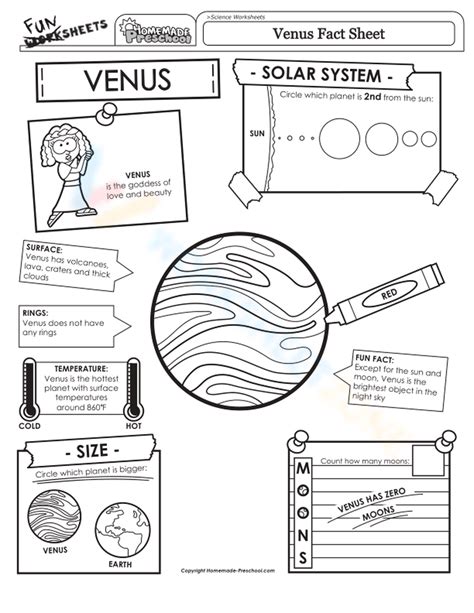 FUN
WORKSHEETS
HOMEMADE
PRESCHOOL
>Science Worksheets
Venus Fact Sheet
VENUS
- SOLAR SYSTEM -
Circle which planet is 2nd from the sun:
SUN
VENUS
is the goddess of
love and beauty
SURFACE:
Venus has volcanoes,
lava, craters and thick
clouds
RINGS:
Venus does not have
any rings
TEMPERATURE:
Venus is the hottest
planet with surface
temperatures
around 860°F
COLD
HOT
RED
FUN FACT:
Except for the sun and
moon, Venus is the
brightest object in the
night sky
- SIZE -
Circle which planet is bigger:
VENUS
EARTH
MOONS
Count how many moons:
VENUS HAS ZERO
MOONS
Copyright Homemade-Preschool.com